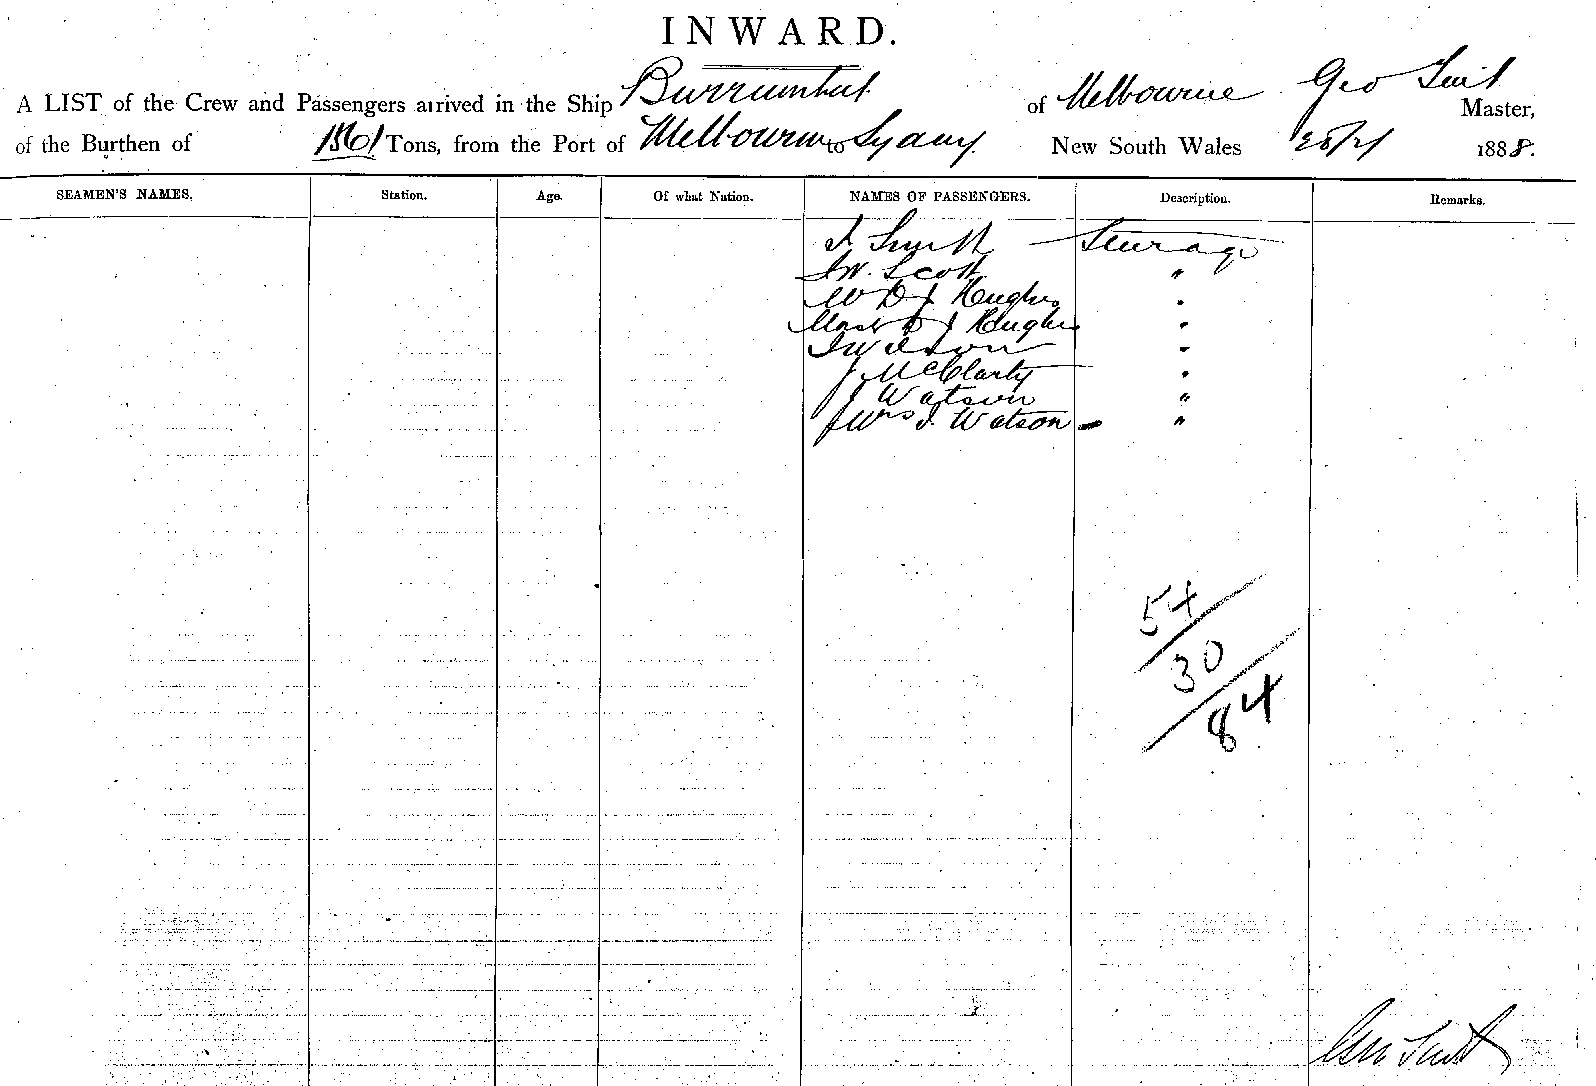 INWARD.
A LIST of the Crew and Passengers arrived in the Ship Burrumbeet of Melbourne Geo Smith Master,
of the Burthen of Tons, from the Port of Melbourne to Sydney New South Wales 1888.
SEAMEN'S NAMES. Station. Age. Of what Nation. NAMES OF PASSENGERS. Description. Remarks.
Smith Steerage
Scott "
Hughes "
Mast Hughes "
"
J McClarty "
J Watson "
Mrs J. Watson "
54
30
84
Geo Smith